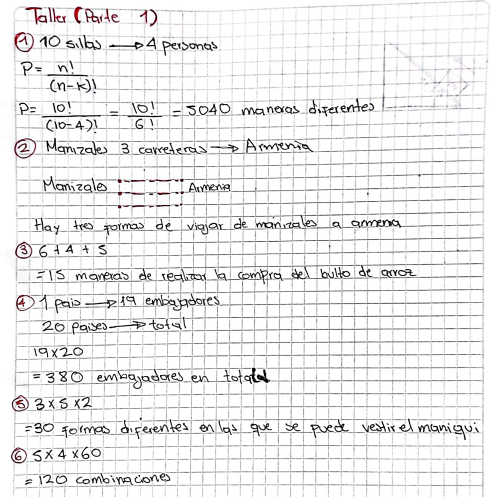 Taller (Parte 1)
① 10 sillas → 4 personas
P= n!
(n-k)!
P= 10! = 10! = 5040 maneras diferentes
(10-4)! 6!
② Manizales 3 carreteras → Armenia
Manizales Armenia
Hay tres formas de viajar de manizales a armenia
③ 6+4+5
=15 maneras de realizar la compra del bulto de arroz
④ 1 pais → 19 embajadores
20 paises → total
19x20
=380 embajadores en total
⑤ 3x5x2
=30 formas diferentes en las que se puede vestir el maniqui
⑥ 5x4x60
=120 combinaciones